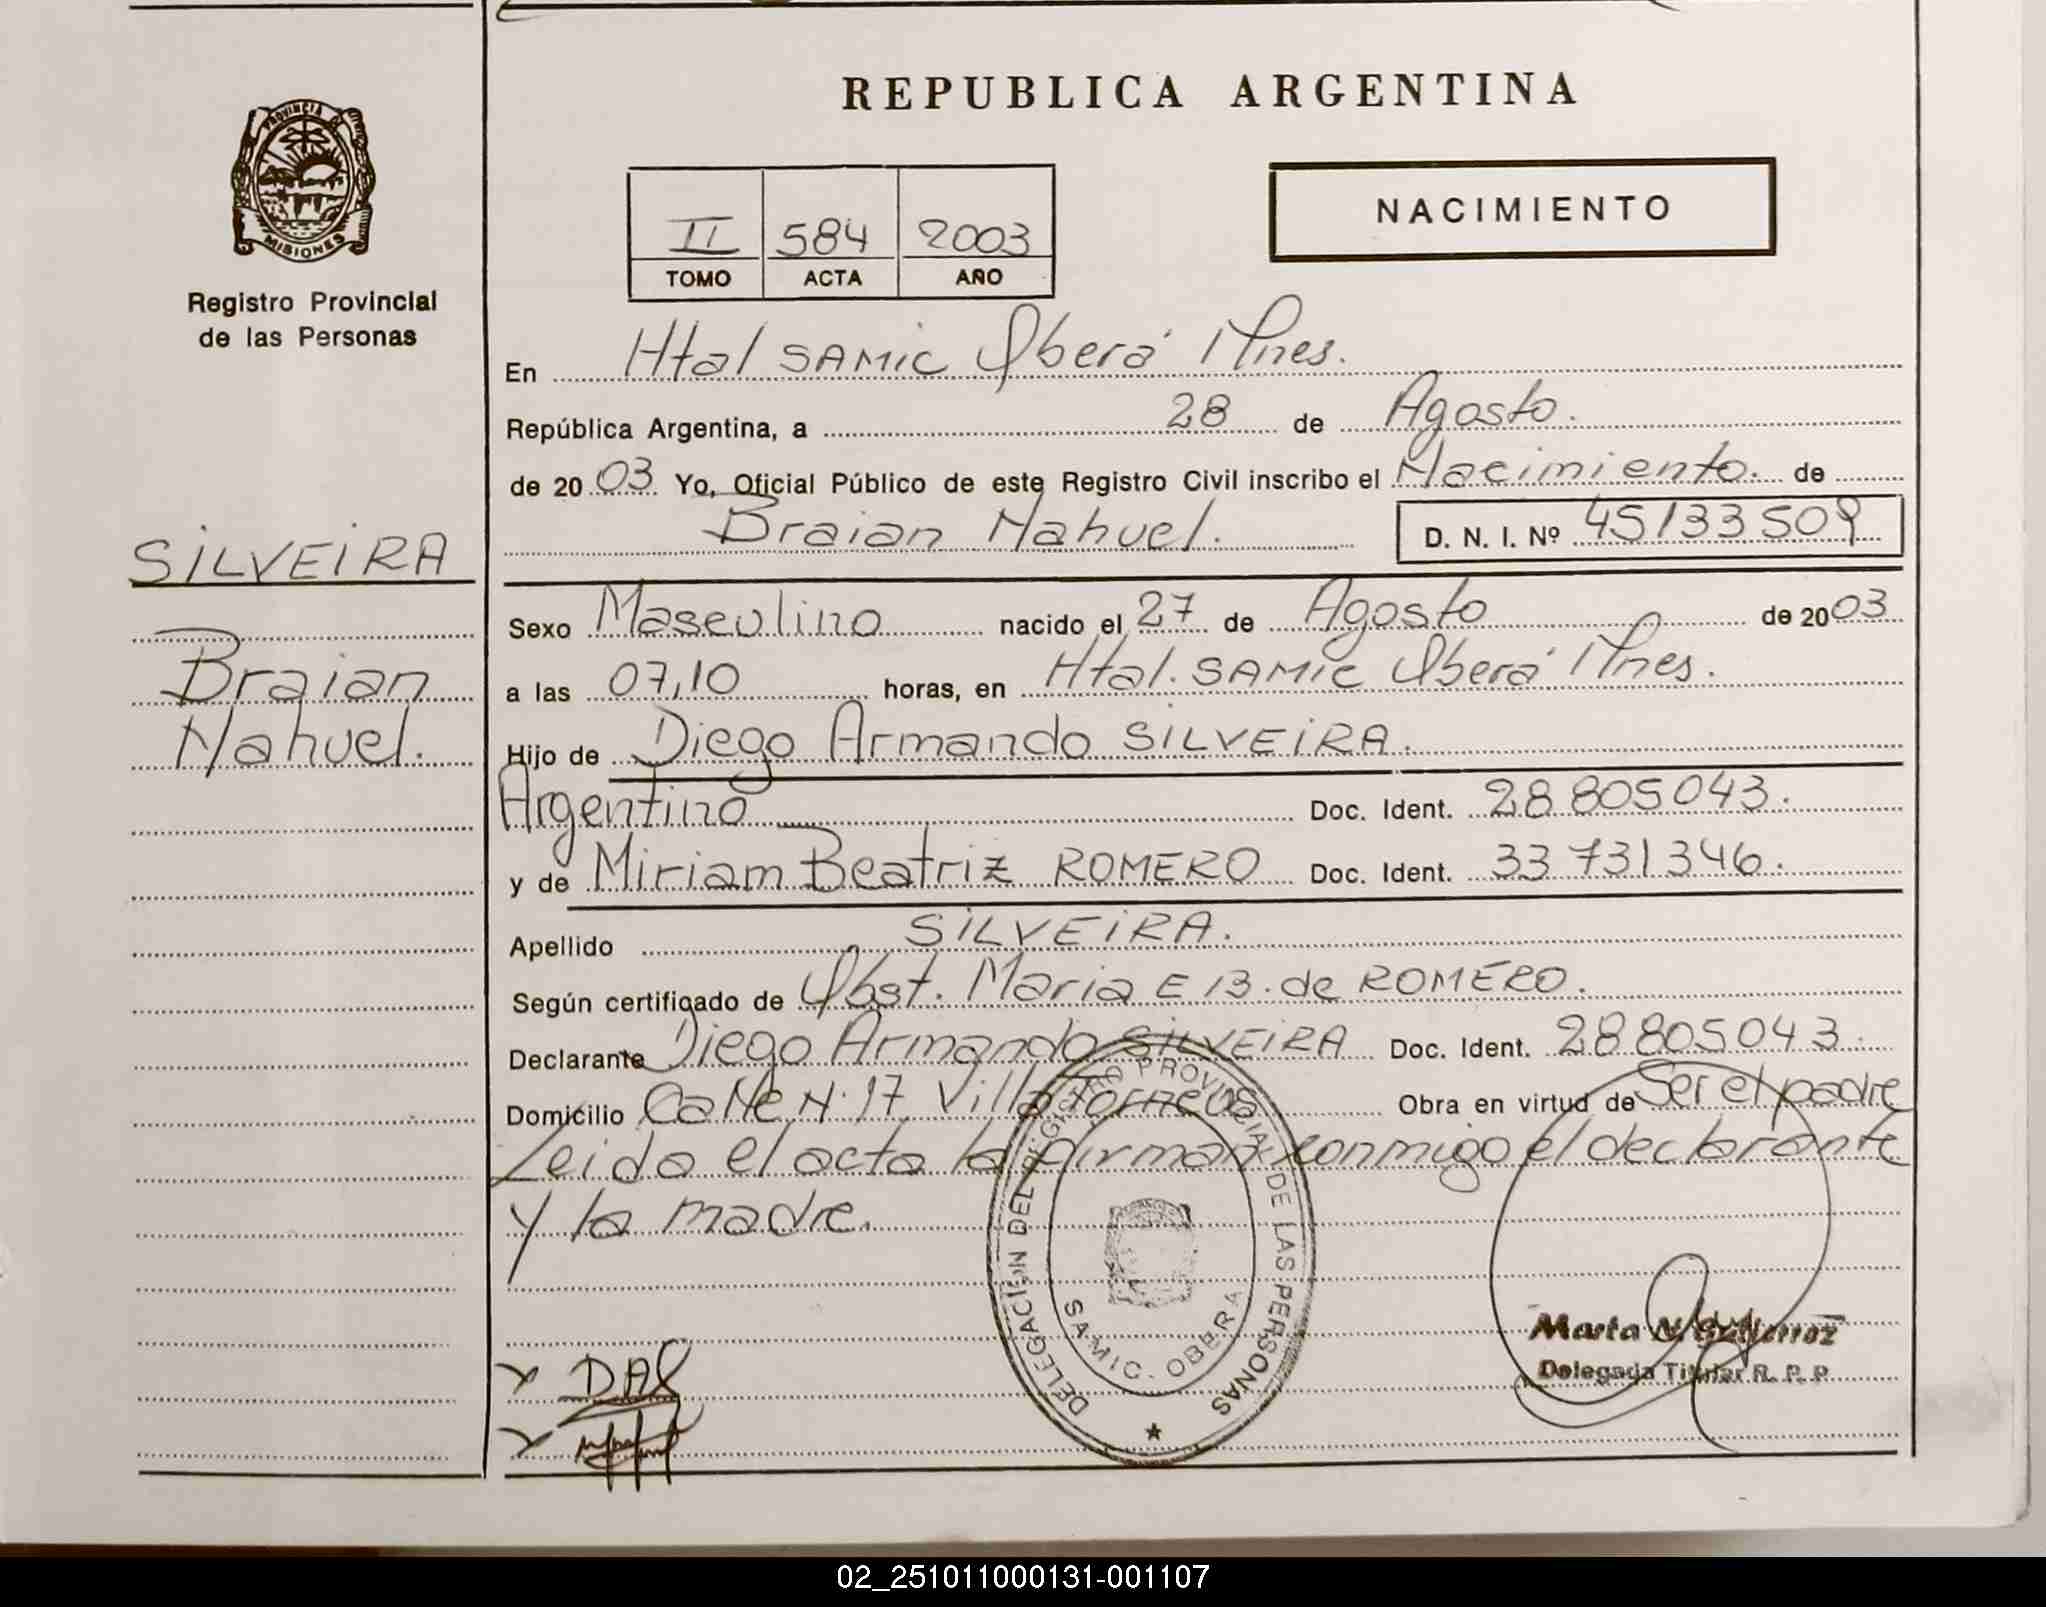 REPUBLICA ARGENTINA
PROVINCIA DE
MISIONES
Registro Provincial
de las Personas
II 584 2003
TOMO ACTA AÑO
NACIMIENTO
En Htal SAMIC Oberá Mnes.
República Argentina, a 28 de Agosto.
de 2003 Yo, Oficial Público de este Registro Civil inscribo el Nacimiento. de
Braian Nahuel. D. N. I. Nº 45133509
SILVEIRA
Braian
Nahuel.
Sexo Masculino nacido el 27 de Agosto de 2003
a las 07,10 horas, en Htal. SAMIC Oberá Mnes.
Hijo de Diego Armando SILVEIRA.
Argentino Doc. Ident. 28 805 043.
y de Miriam Beatriz ROMERO Doc. Ident. 33 731 346.
Apellido SILVEIRA.
Según certificado de Obst. Maria E B. de ROMERO.
Declarante Diego Armando SILVEIRA Doc. Ident. 28 805 043.
Domicilio Calle N. 17 Villa Obra en virtud de Ser el padre
Leida el acta la firman conmigo el declarante
y la madre.
DELEGACION DEL REGISTRO PROVINCIAL DE LAS PERSONAS
SAMIC. OBERA
Marta N. Gutierrez
Delegada Titular R. P. P.
DAS
02_251011000131-001107